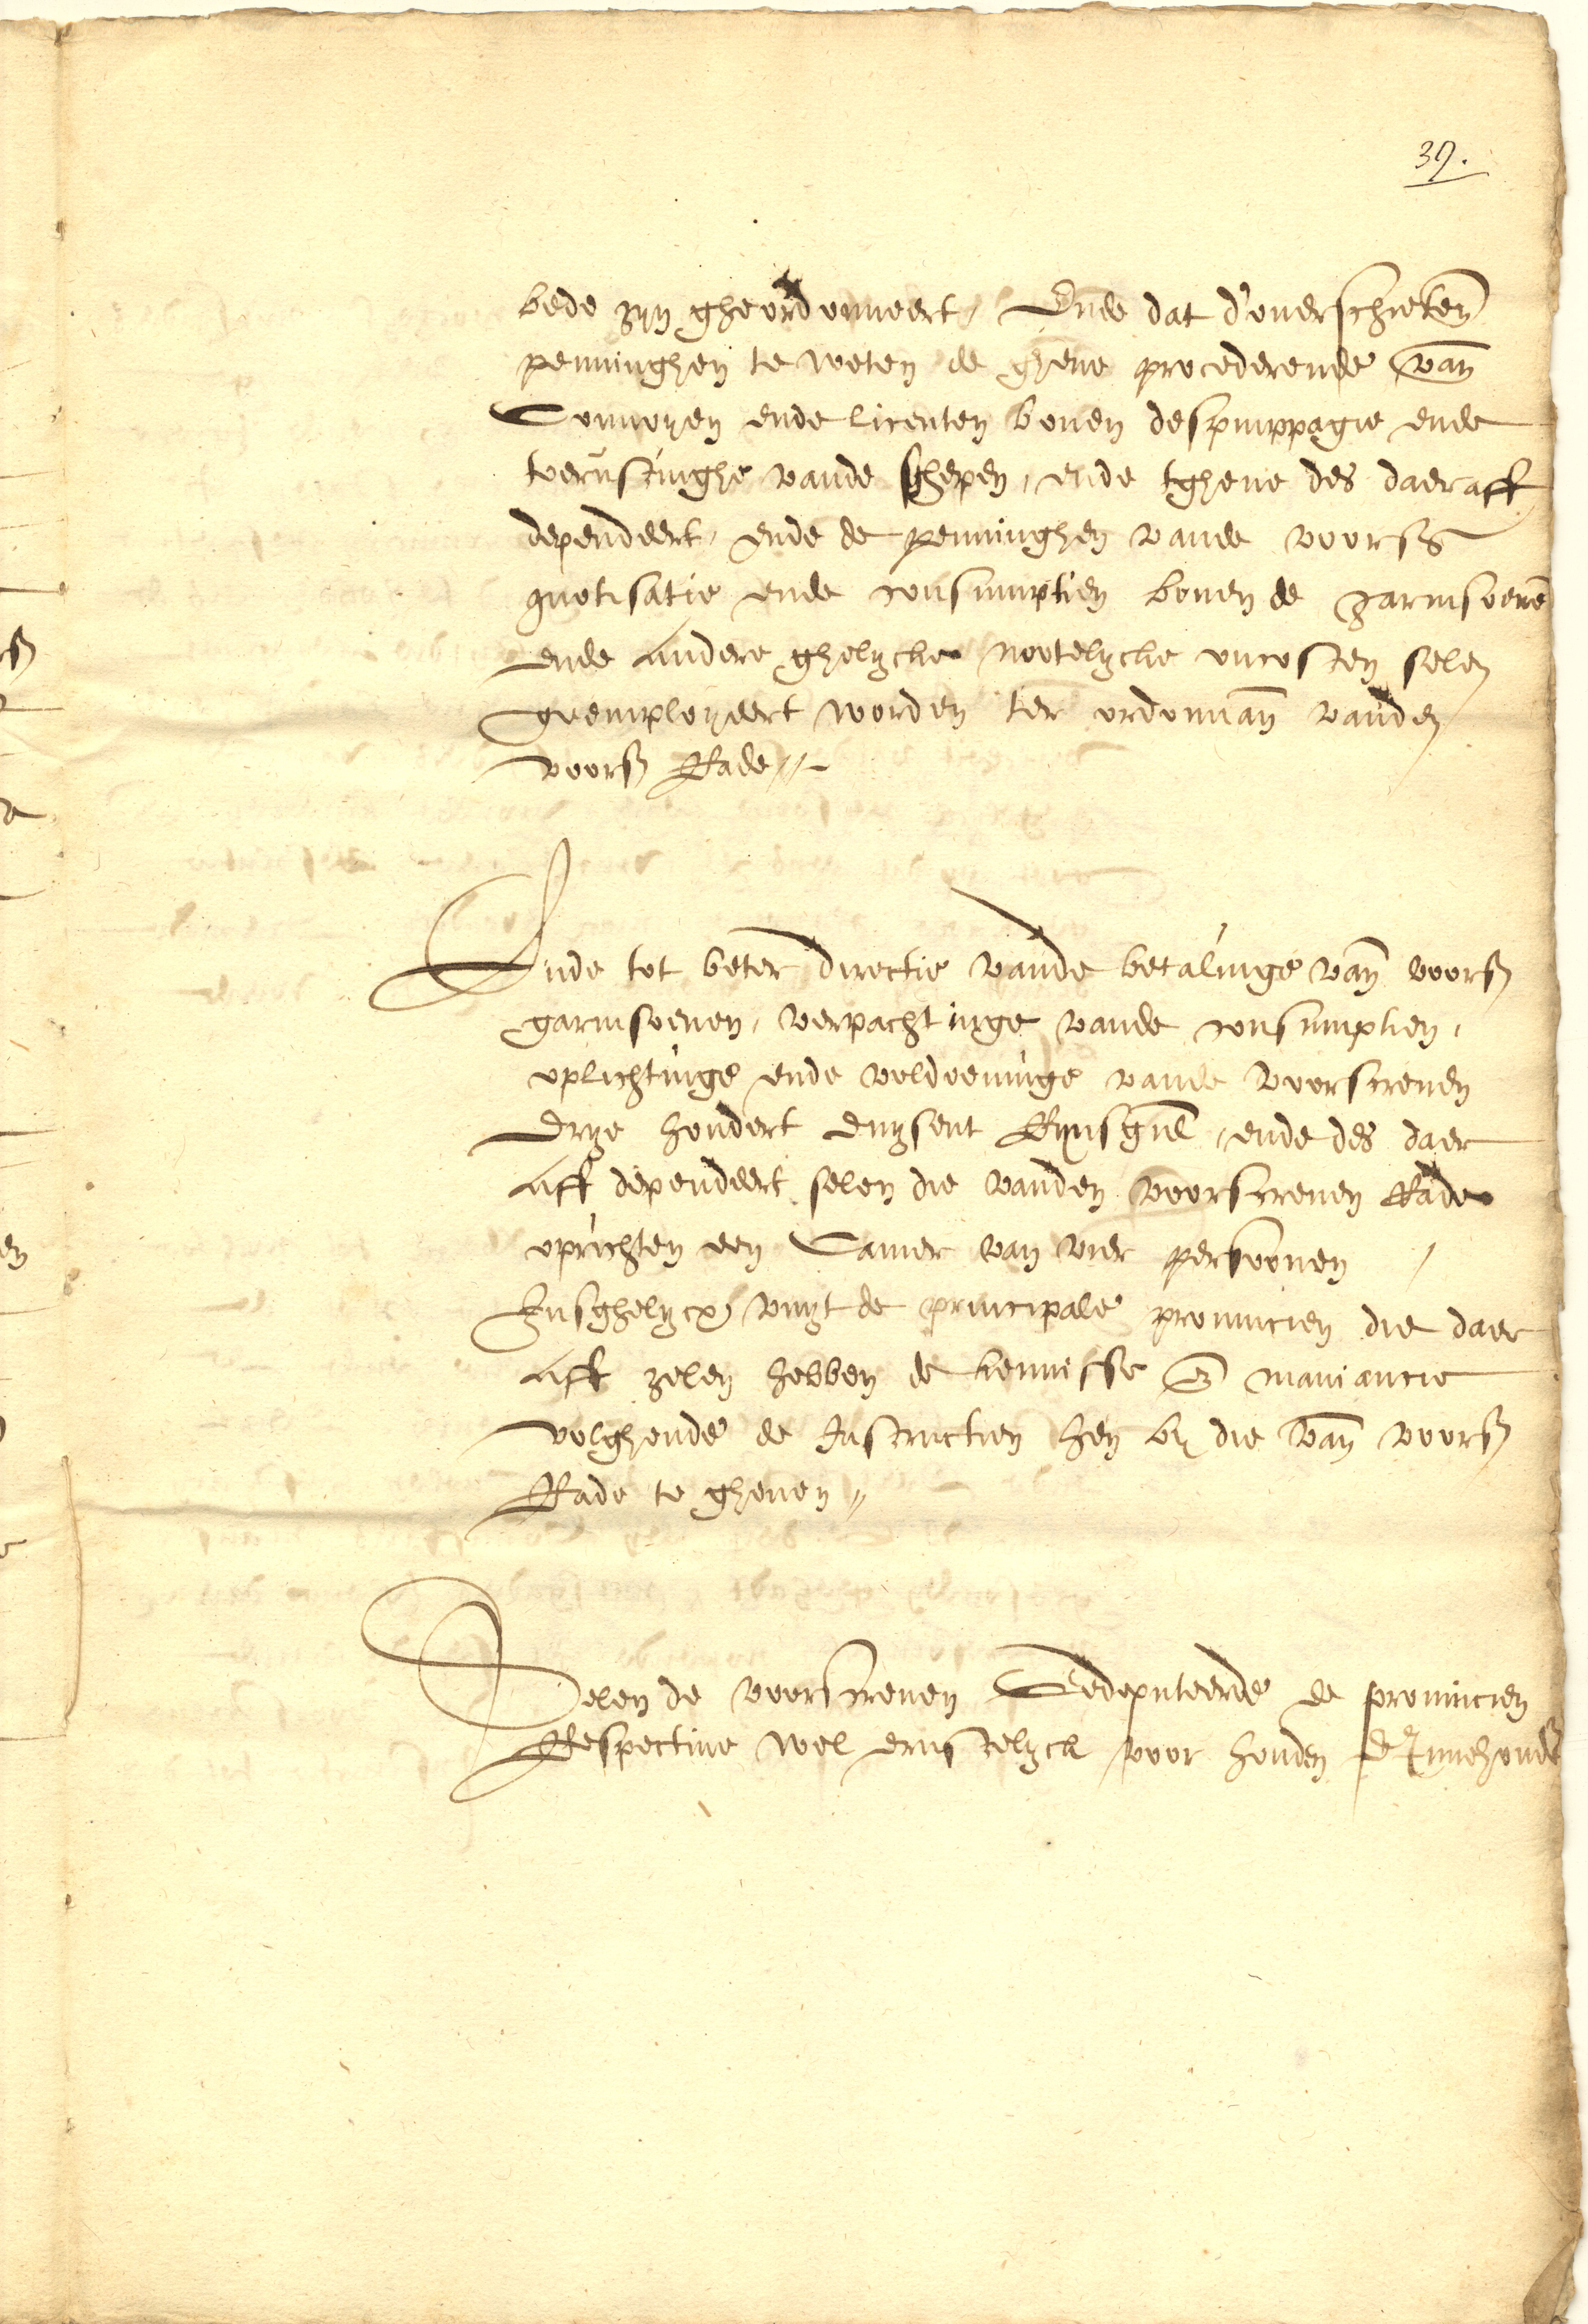 39.
bede zyn gheordonneert, Ende dat d'ouerschieten
penninghen te weten de ghene procederende van
Conuoyen ende licenten bouen desquippagie ende
toerustinghe vande schepen, ende tghene des daer aff
dependeert, ende de penninghen vande voors
quotisatie ende consumptien bouen de garnisoene
ende andere ghelycke nootelycke oncosten selen
geemployeert worden ter ordonnan vanden
voors Rade //
Ende tot beter directie vande betalinge van voors
garnisoenen, verpachtinge vande consumptien,
oplichtinge ende voldoeninge vande voorscreuen
drye hondert duysent Rynsgul, ende des daer
aff dependeert selen die vanden voorscreuen Rade
oprichten een Camer van vier persoonen,
Insghelycx vuyt de principale prouincien die daer
aff zelen hebben de kennisse en maniancie
volghende de Instructien hen by die van voors
Rade te gheuen //
Selen de voorscreuen Gedeputeerde de prouincien
Respectiue wel ernstelyck voor houden d'Innehoude